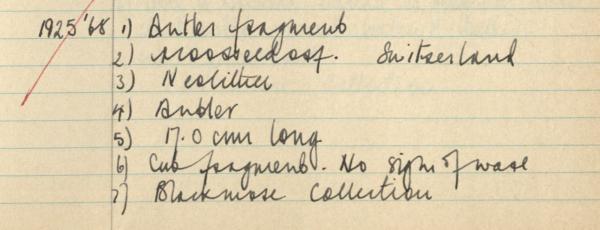 1925'68 1) Antler fragment
2) Moosseedorf. Switzerland
3) Neolithic
4) Antler
5) 17.0 cm long
6) Cut fragment. No sign of wear
7) Blackmore Collection